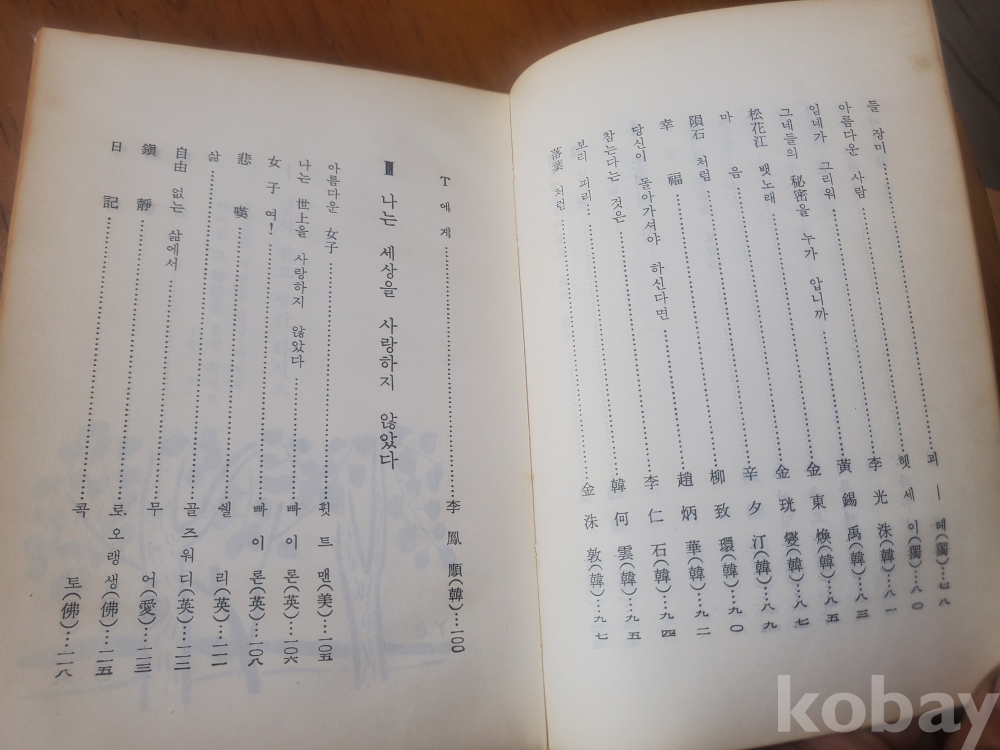 들 장미………괴—테(獨)…七八
아름다운 사람………헷세이(獨)…八〇
임네가 그리워………李光洙(韓)…八一
그네들의 秘密을 누가 압니까………黃錫禹(韓)…八三
松花江 뱃노래………金東煥(韓)…八五
마음………金珖燮(韓)…八七
隕石 처럼………辛夕汀(韓)…八九
幸福………柳致環(韓)…九〇
당신이 돌아가셔야 하신다면………趙炳華(韓)…九二
참는다는 것은………李仁石(韓)…九四
보리 피리………韓何雲(韓)…九五
落葉 처럼………金洙敦(韓)…九七
T에게………李鳳順(韓)…一〇〇
Ⅲ 나는 세상을 사랑하지 않았다
아름다운 女子………휫트맨(美)…一〇五
나는 世上을 사랑하지 않았다………빠이론(英)…一〇六
女子여!………빠이론(英)…一〇八
悲嘆………쉘리(英)…一一一
삶………골즈워디(英)…一一二
自由 없는 삶에서………무어(愛)…一一三
鎭靜………로오랭생(佛)…一一五
日記………콕토(佛)…一一八
kobay